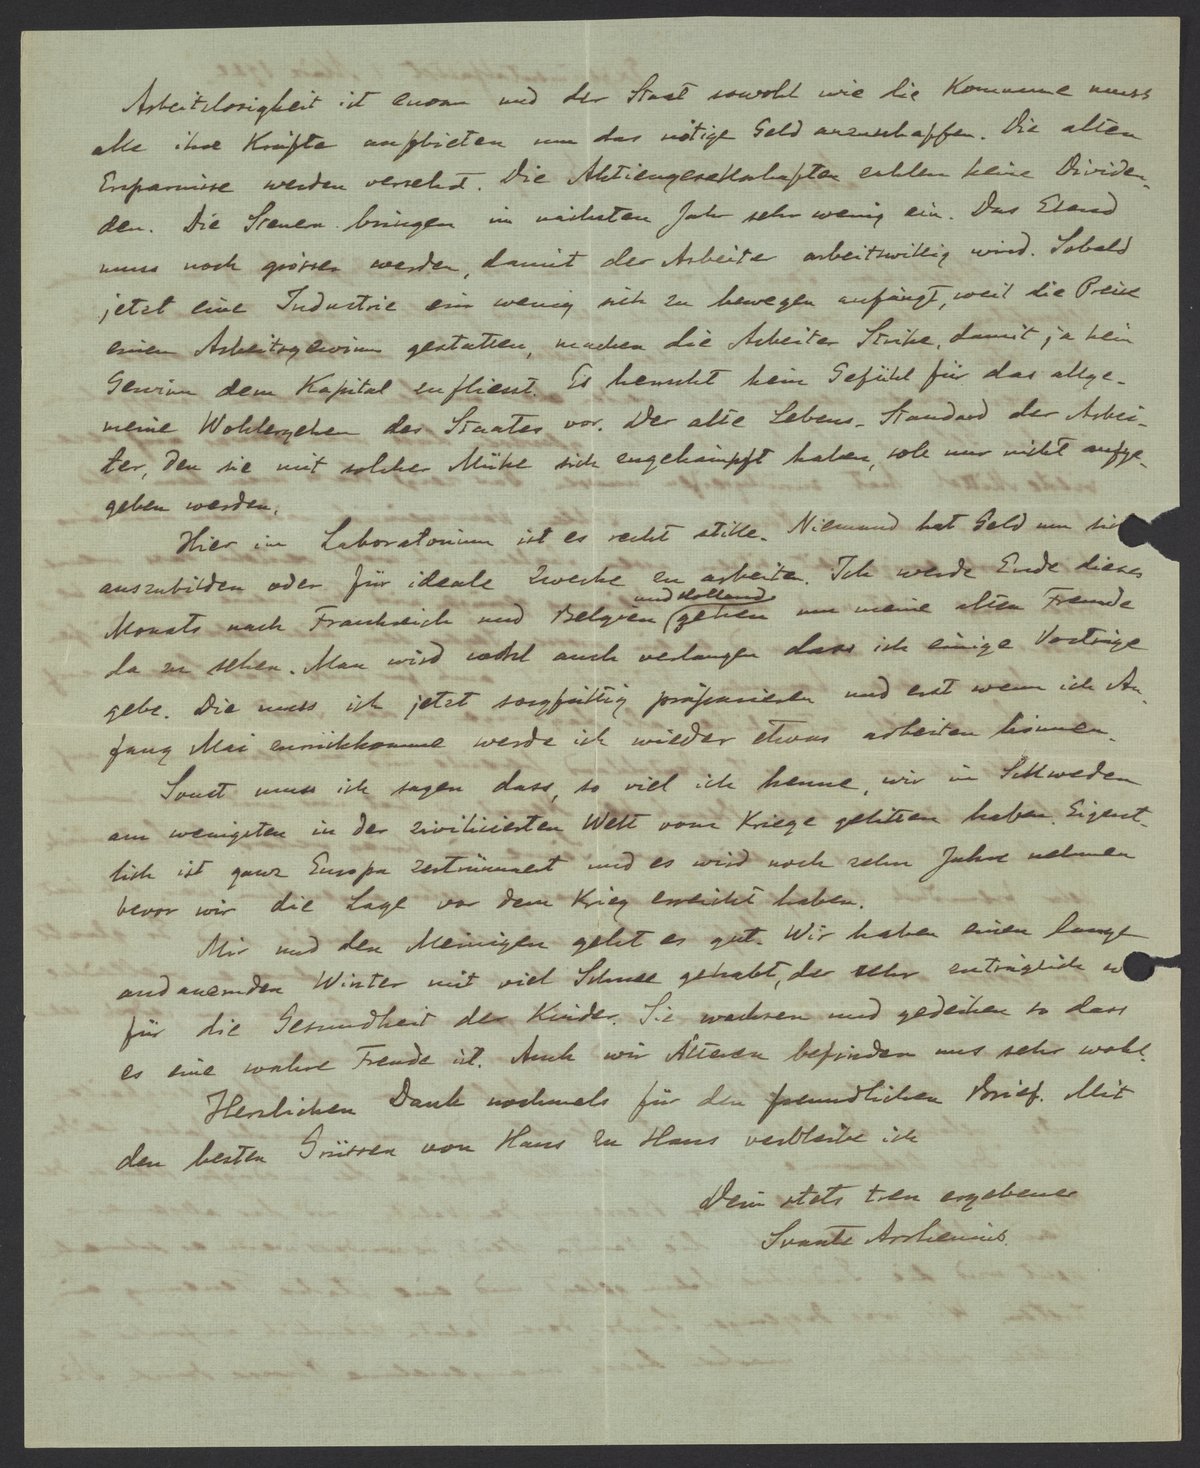 Arbeitslosigkeit ist enorm und der Staat sowohl wie die Kommune muss
alle ihre Kräfte aufbieten um das nötige Geld anzuschaffen. Die alten
Ersparnisse werden verzehrt. Die Aktiengesellschaften zahlen keine Dividen-
den. Die Steuern bringen im nächsten Jahr sehr wenig ein. Das Elend
muss noch grösser werden, damit der Arbeiter arbeitswillig wird. Sobald
jetzt eine Industrie ein wenig sich zu bewegen anfängt, weil die Preise
einen Arbeitsgewinn gestatten, machen die Arbeiter Strike, damit ja kein
Gewinn dem Kapital zufliesst. Es herrscht kein Gefühl für das allge-
meine Wohlergehen des Staates vor. Der alte Lebens-Standard der Arbei-
ter, den sie mit solcher Mühe sich zugekämpft haben, soll nur nicht aufge-
geben werden.
Hier im Laboratorium ist es recht stille. Niemand hat Geld um sich
auszubilden oder für ideale Zwecke zu arbeiten. Ich werde Ende dieses
und Holland
Monats nach Frankreich und Belgien gehen um meine alten Freunde
da zu sehen. Man wird wohl auch verlangen dass ich einige Vorträge
gebe. Die muss ich jetzt sorgfältig präparieren und erst wenn ich An-
fang Mai zurückkomme werde ich wieder etwas arbeiten können.
Sonst muss ich sagen dass, so viel ich kenne, wir in Schweden
am wenigsten in der zivilisierten Welt vom Kriege gelitten haben. Eigent-
lich ist ganz Europa zertrümmert und es wird noch zehn Jahre nehmen
bevor wir die Lage vor dem Krieg erreicht haben.
Mir und den Meinigen geht es gut. Wir haben einen lange
andauernden Winter mit viel Schnee gehabt, der sehr zuträglich
für die Gesundheit der Kinder. Sie wachsen und gedeihen so dass
es eine wahre Freude ist. Auch wir Älteren befinden uns sehr wohl.
Herzlichen Dank nochmals für den freundlichen Brief. Mit
den besten Grüssen von Haus zu Haus verbleibe ich
Dein stets treu ergebener
Svante Arrhenius